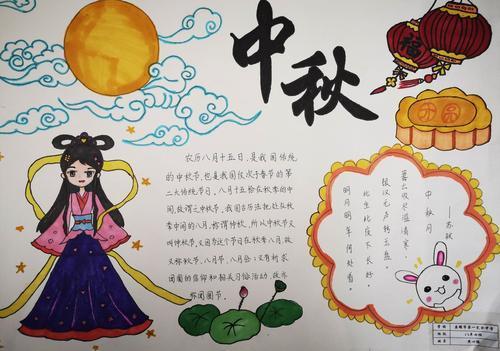 中秋
福
团圆
农历八月十五日,是我国传统
的中秋节,也是我国仅次于春节的第
二大传统节日。八月十五恰在秋季的中
间,故谓之中秋节。我国古历法把处在秋
季中间的八月,称谓仲秋,所以中秋节又
叫仲秋节。又因为这个节日在秋季八月,故
又称秋节、八月节、八月会;又有祈求
团圆的信仰和相关习俗活动,故亦
称团圆节。
中秋月
——苏轼
暮云收尽溢清寒,
银汉无声转玉盘。
此生此夜不长好,
明月明年何处看。